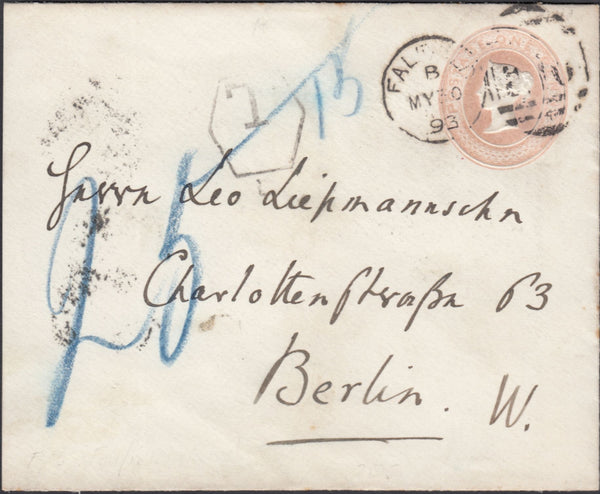 B
MY 30
93
T
15
25
Herrn Leo Liepmannssohn
Charlottenstraße 63
Berlin. W.